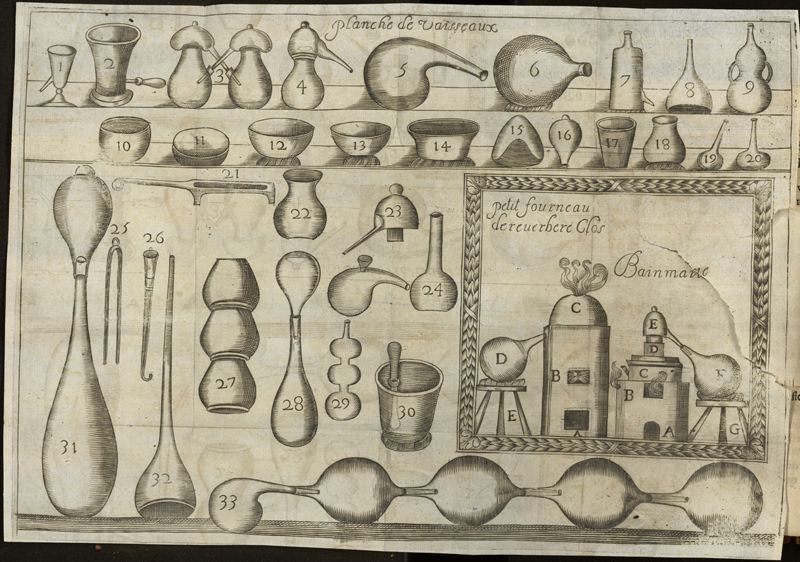 planche de vaisseaux
1 2 3 4 5 6 7 8 9
10 11 12 13 14 15 16 17 18 19 20
21
22 23 24
25 26
27 28 29 30
31 32
33
petit fourneau
de reuerbere Clos
Bainmarie
C
D B E A
E D C B A F G